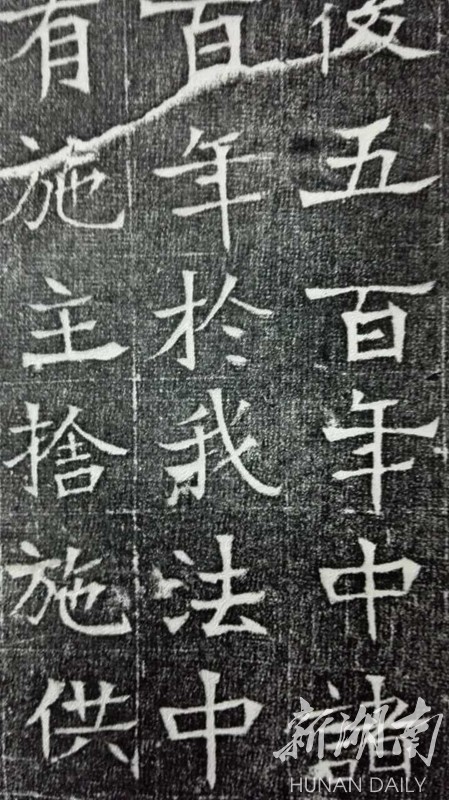 後五百年中諸
百年於我法中
有施主捨施供
新湖南
HUNAN DAILY